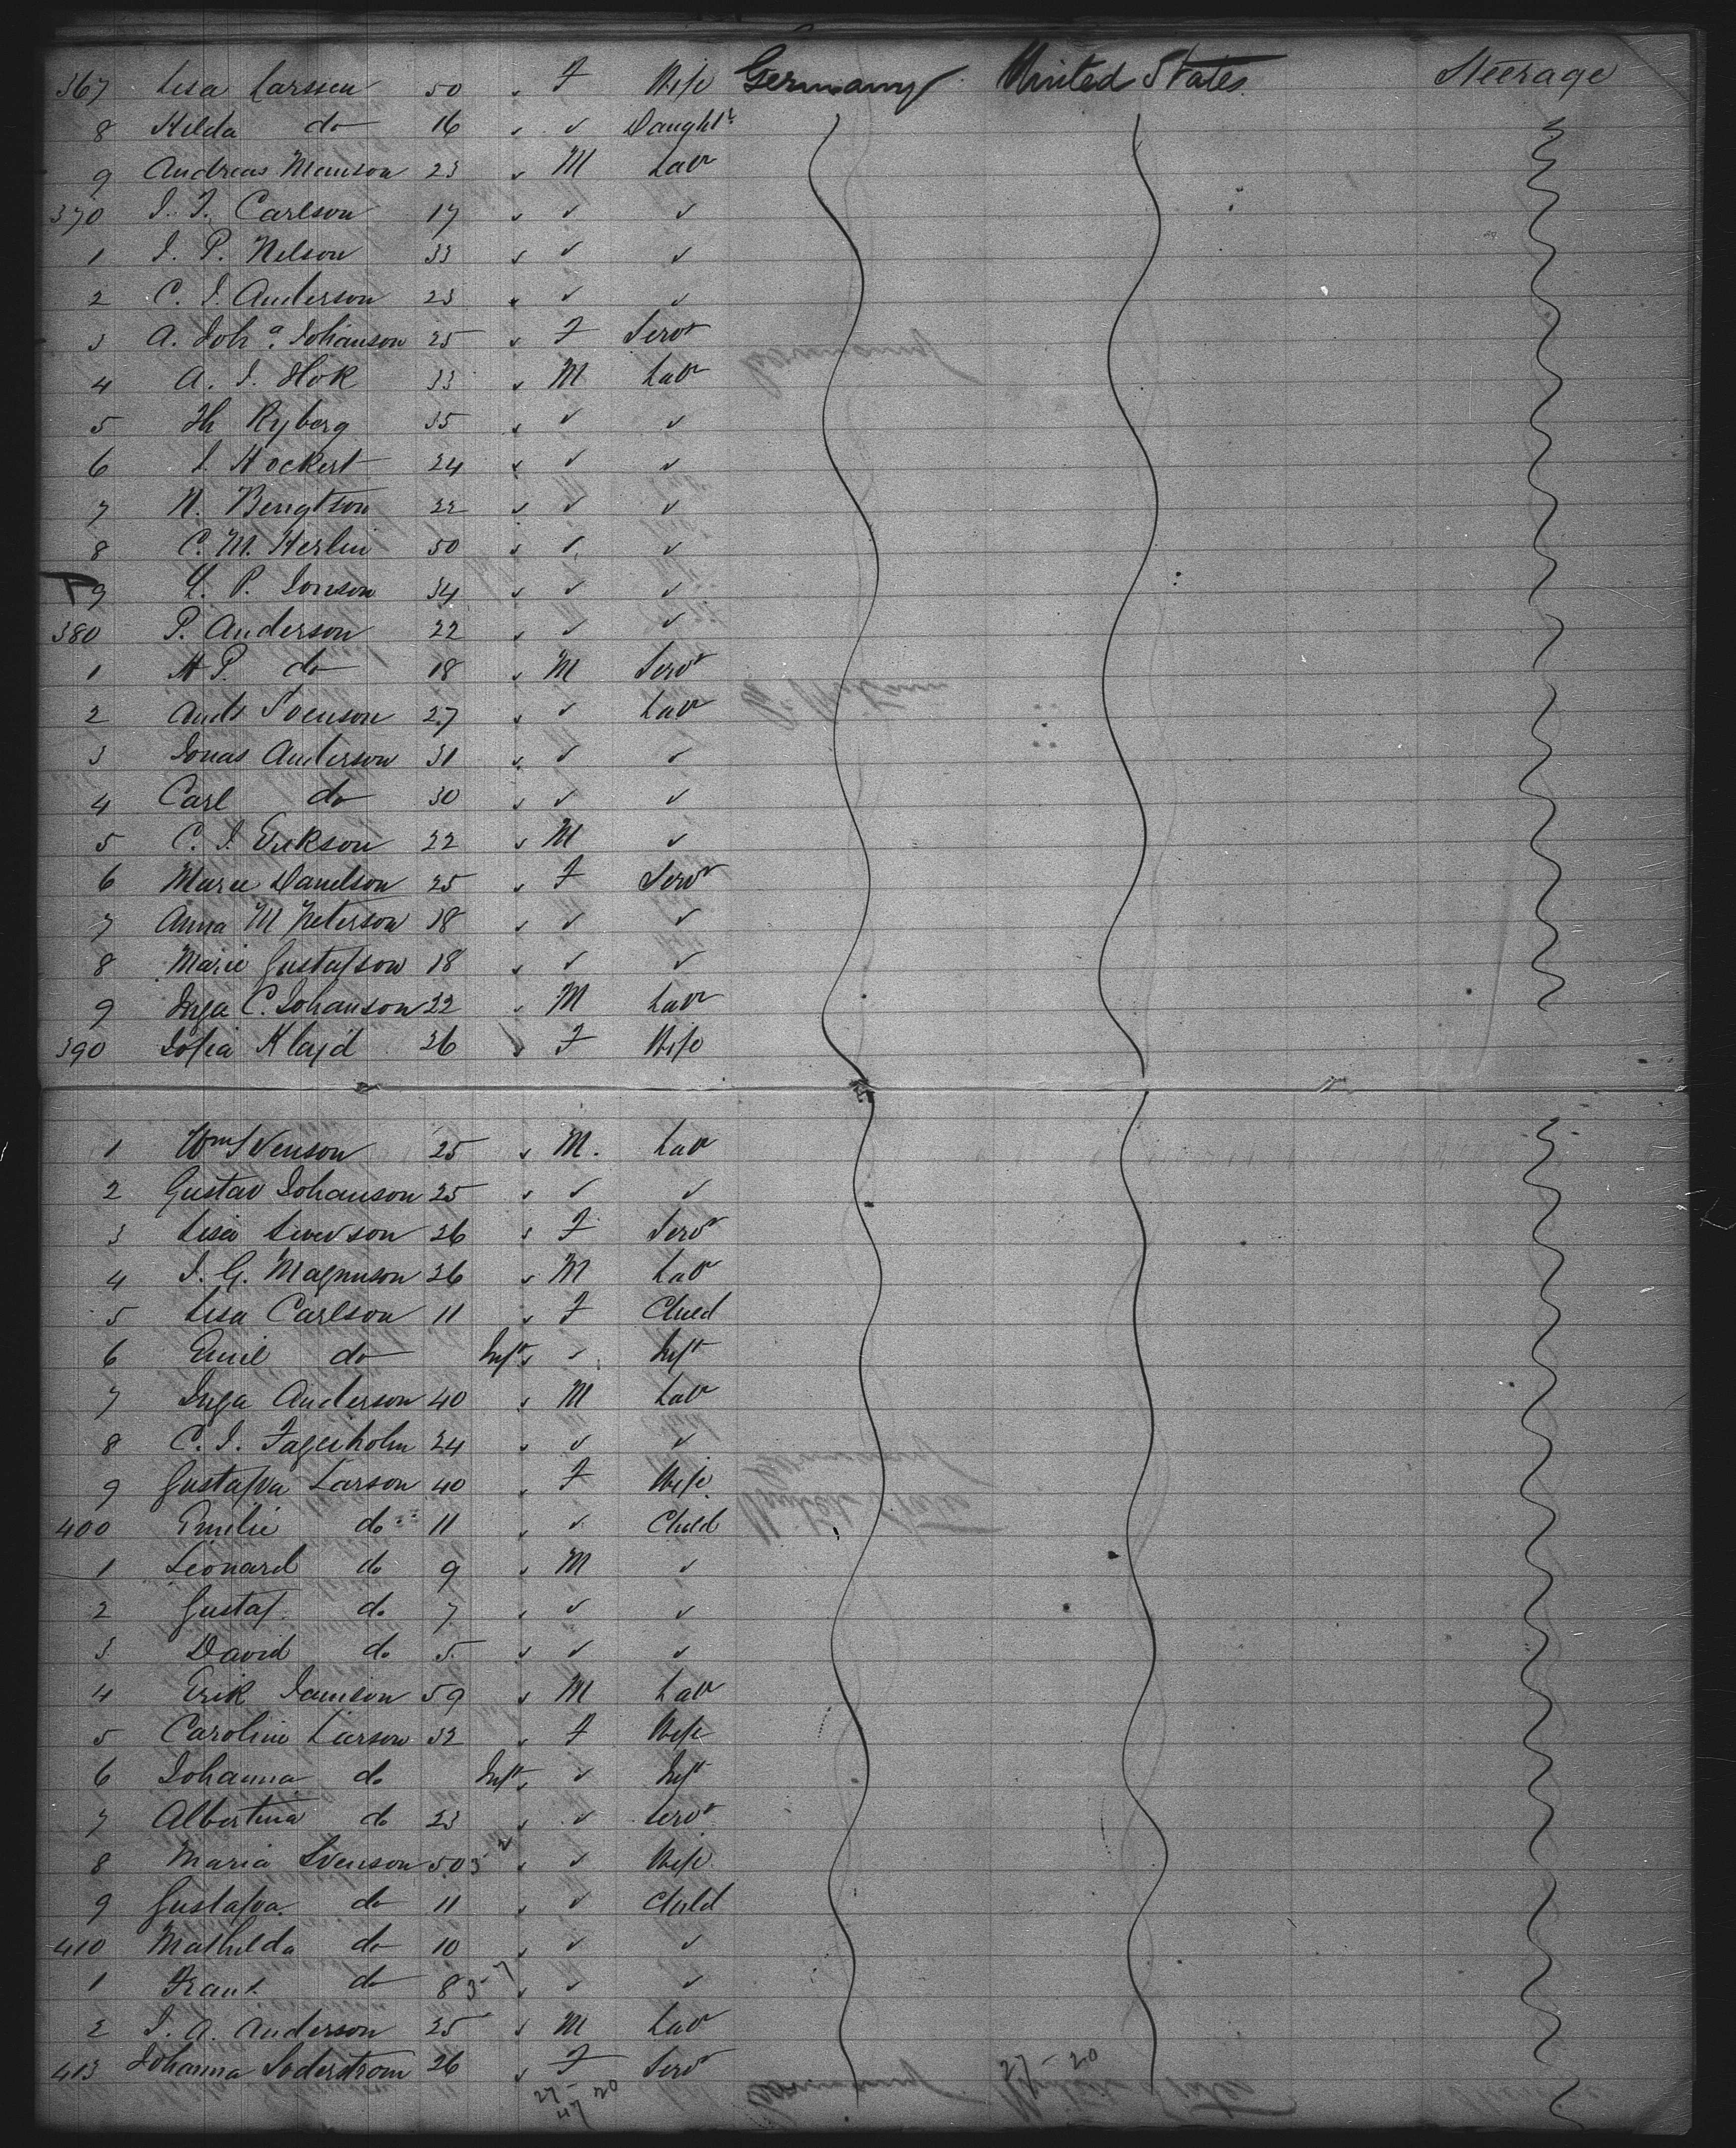 367 Lisa Larssen 50 F Wife Germany United States Steerage
8 Hilda do 16 ✓ Daughtr
9 Andreas Monson 23 M Labr
370 J. F. Carlson 17 ✓ ✓
1 J. P. Nelson 33 ✓ ✓
2 C. J. Anderson 23 ✓ ✓
3 A. Joha Johanson 25 F Servt
4 A. J. Hök 33 M Labr
5 Th Ryberg 35 ✓ ✓
6 J. Hockert 24 ✓ ✓
7 N. Bengtson 22 ✓ ✓
8 C. M. Herlin 50 ✓ ✓
9 P. Jonson 34 ✓ ✓
380 P. Anderson 22 ✓ ✓
1 A P. do 18 M Servt
2 Ands Svenson 27 ✓ Labr
3 Jonas Anderson 31 ✓ ✓
4 Carl do 30 ✓ ✓
5 C. J. Erikson 22 M ✓
6 Marie Danelson 25 F Servt
7 Anna M Peterson 18 ✓ ✓
8 Marie Gustafson 18 ✓ ✓
9 Inga C. Johanson 22 M Labr
390 Sofia 26 F Wife
1 Wm Svenson 25 M. Labr
2 Gustav Johanson 25 ✓ ✓
3 Lisa 26 F Servt
4 J. G. Magnuson 26 M Labr
5 Lisa Carlson 11 F Child
6 Emil do Inft ✓ Inft
7 Inga Anderson 40 M Labr
8 C. J. Fagerholm 24 ✓ ✓
9 Gustafva Larson 40 F Wife
400 Emilie do 11 ✓ Child
1 Leonard do 9 M ✓
2 Gustaf do 7 ✓ ✓
3 David do 5 ✓ ✓
4 Erik 59 M Labr
5 Caroline Larson 32 F Wife
6 Johanna do Inft ✓ Inft
7 Albertina do 23 ✓ Servt
8 Maria Svenson 50 ✓ Wife
9 Gustafva do 11 ✓ Child
410 Mathilda do 10 ✓ ✓
1 Frans do 8 ✓ ✓
2 J. A. Anderson 25 M Labr
413 Johanna Soderstrom 26 F Servt
27-20 27-20
47